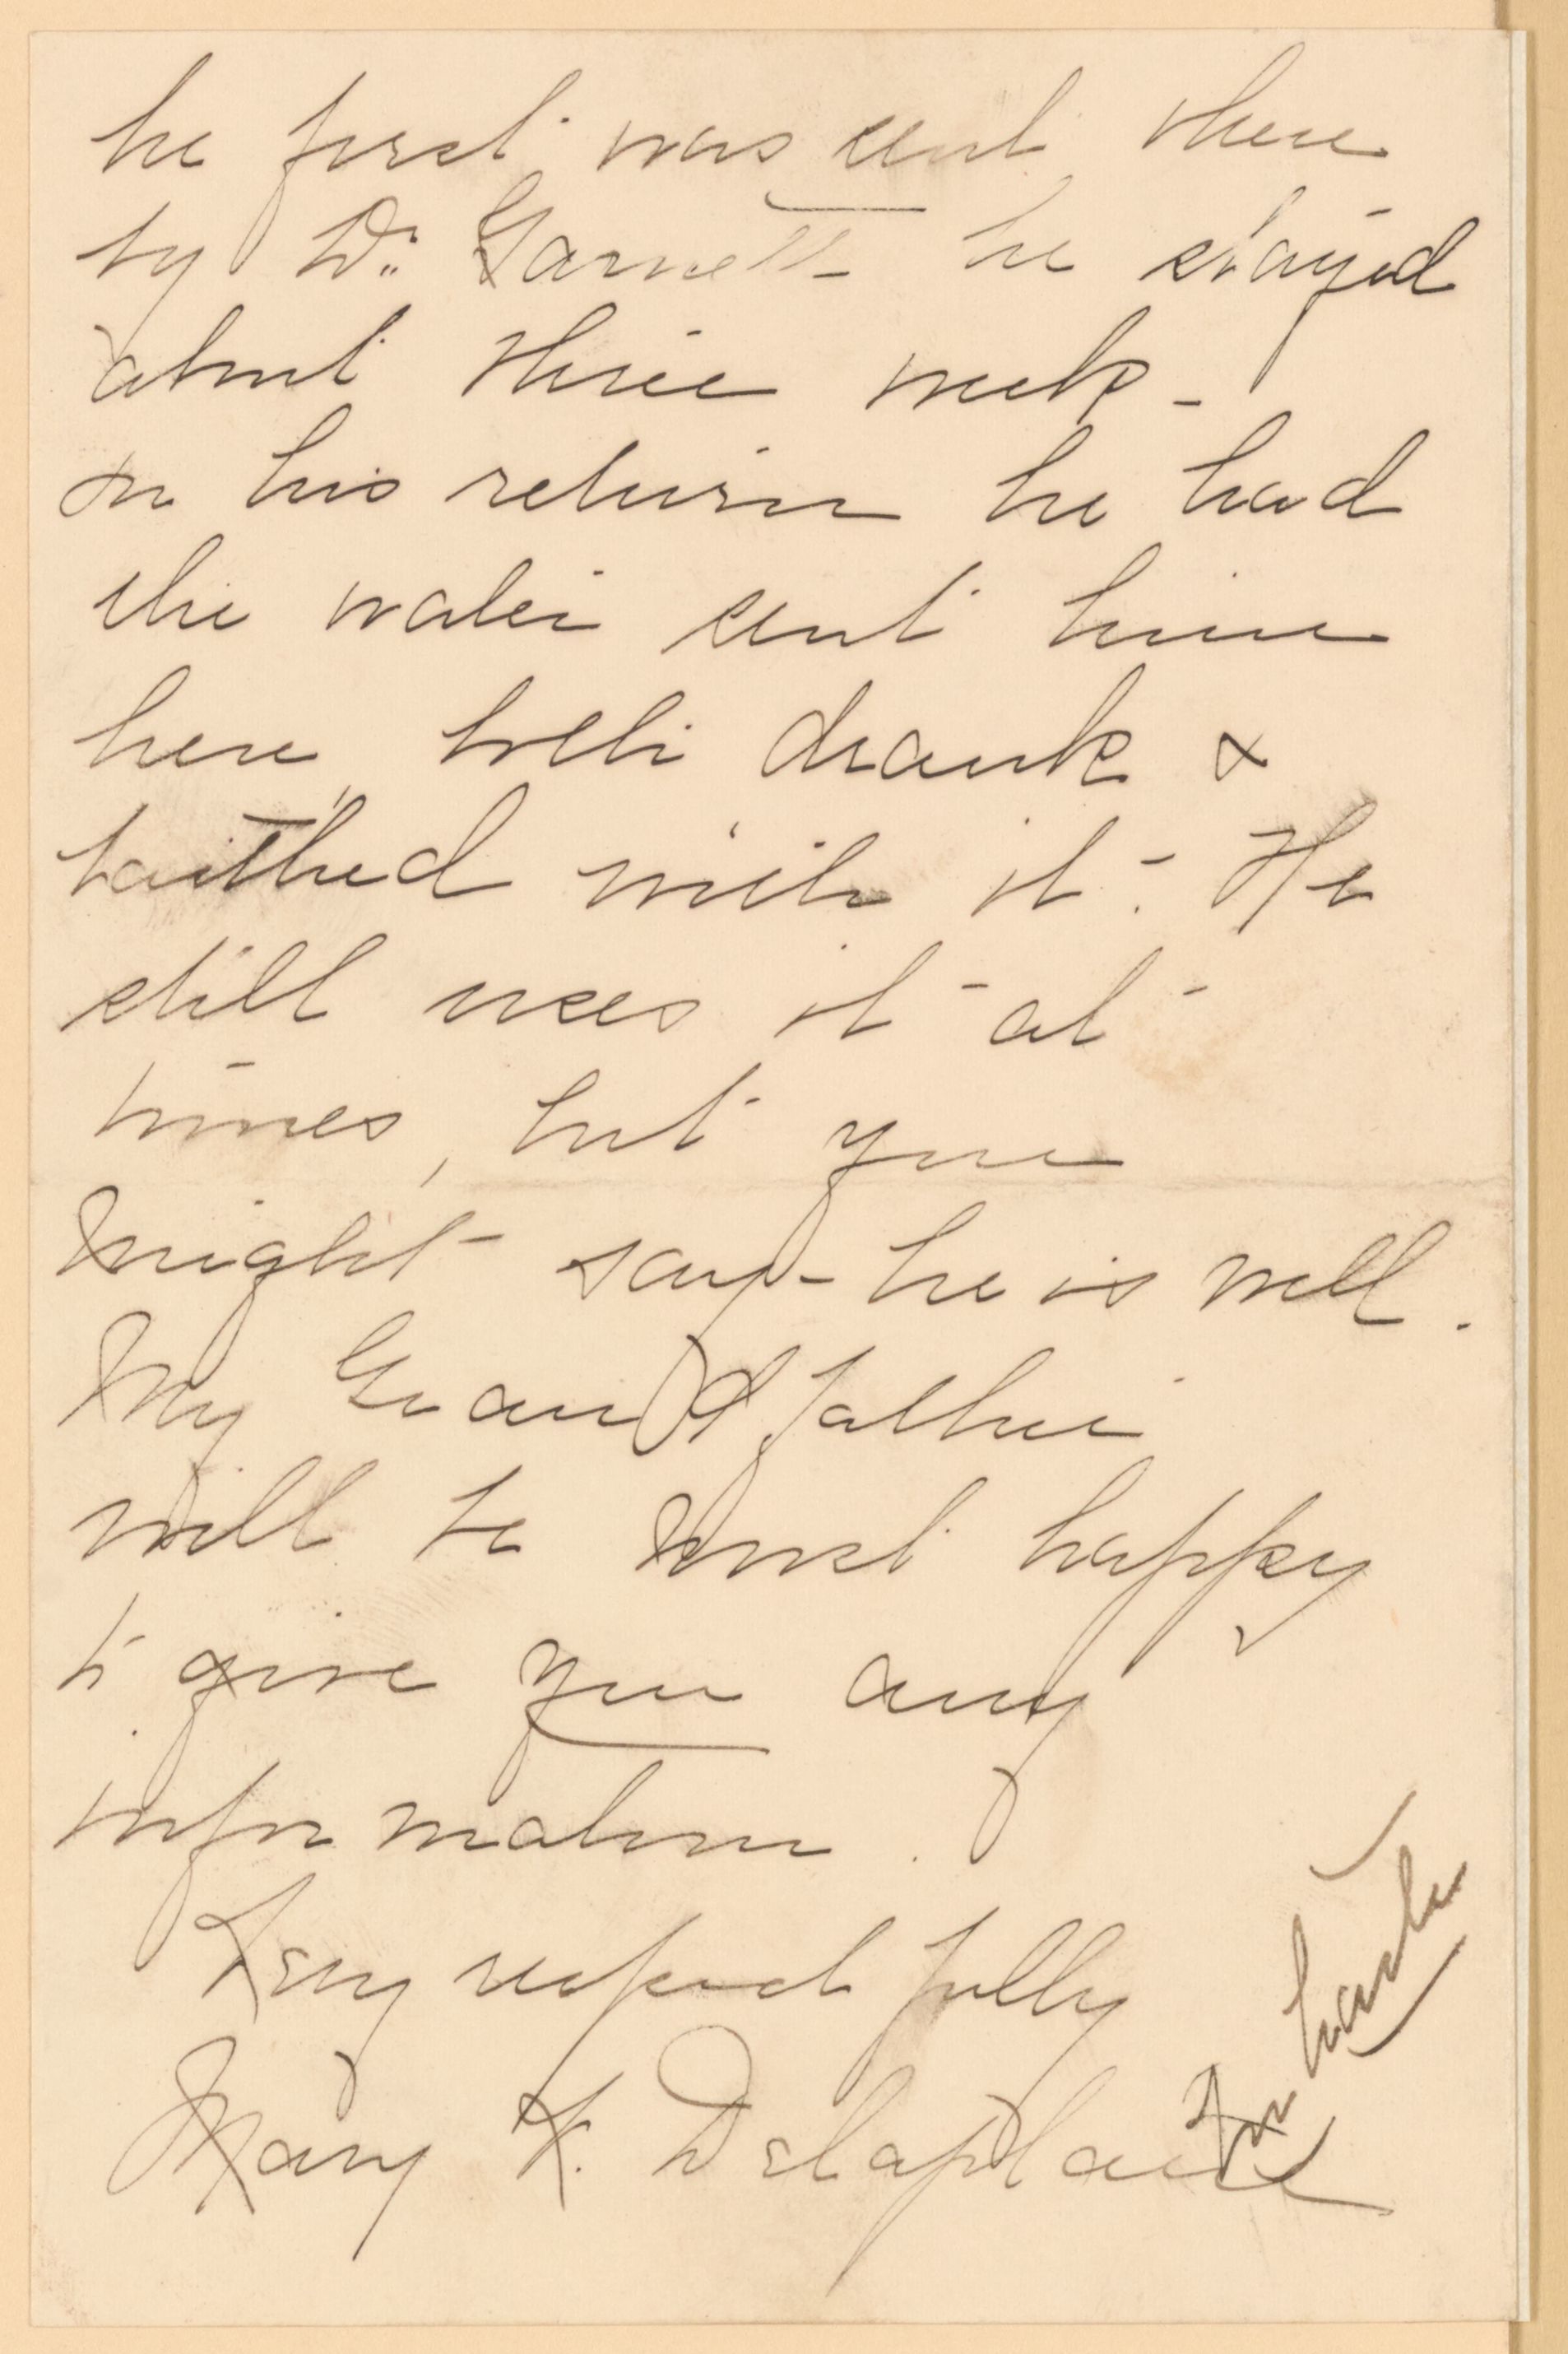 he first was sent there
by Dr. Garnett he stayed
about three weeks -
On his return he had
the water sent him
here, both drank &
baithed with it - He
still uses it - at -
times, but you
might say - he is well.
My Grand father
will be most happy
to give you any
information.
Very respectfully
Mary K. Delaplaine
In haste